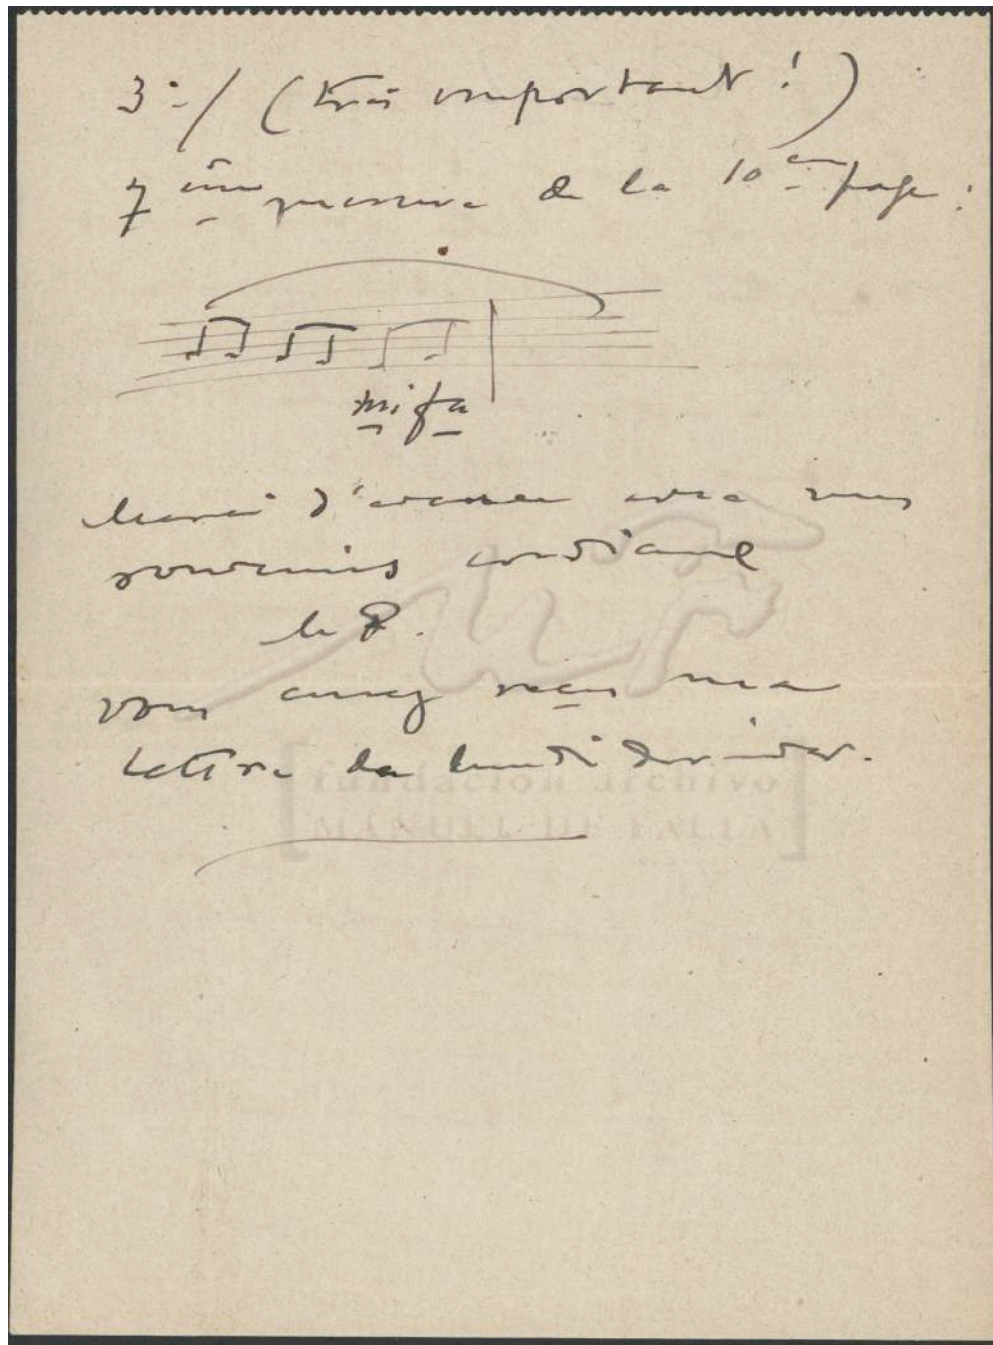 3º-/ (très important!)
7ème mesure de la 10ème page:
mi fa
Merci d'avance avec mes
souvenirs cordiaux
M F.
vous aurez reçu ma
lettre de lundi dernier.
[fundación archivo
MANUEL DE FALLA]